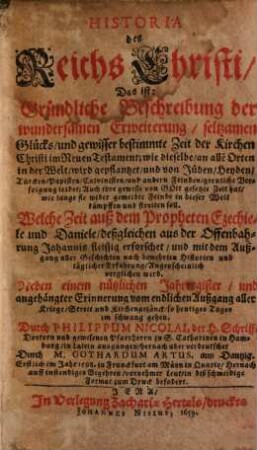 HISTORIA
des
Reichs Christi/
Das ist:
Gründliche Beschreibung der
wundersamen Erweiterung / seltzamen
Glücks / und gewisser bestimmte Zeit der Kirchen
Christi im Neuen Testament; wie dieselbe / an alle Orten
in der Welt / wird gepflantzet / und von Jüden / Heyden /
Türcken / Papisten / Calvinisten / und andern Feinden / greuliche Ver-
folgung leidet; Auch ihre gewisse von GOtt gesetzte Zeit hat /
wie lange sie wider gemeldte Feinde in dieser Welt
kämpffen und streiten soll.
Welche Zeit auß dem Propheten Ezechie-
le und Daniele / deßgleichen aus der Offenbah-
rung Johannis fleissig erforschet / und mit dem Auß-
gang aller Geschichten nach bewehrten Historien und
täglicher Erfahrung / Augenscheinlich
verglichen wird.
Neben einem nützlichen Jahrweiser / und
angehängter Erinnerung vom endlichen Außgang aller
Kriege / Streit und Kirchengezänck / so heutiges Tages
im schwang gehen.
Durch PHILIPPUM NICOLAI, der H. Schrifft
Doctorn und gewesenen Pfarrherrn zu S. Catharinen in Ham-
burg / in Latein ausgangen / hernach aber verdeutschet
Durch M. GOTHARDUM ARTUS, von Dantzig.
Erstlich im Jahr 1598. zu Franckfurt am Mayn in Quarto / Hernach
auff instendiges Begehren / vornehmer Leuten in geschmeidige
Format zum Druck befodert.
JENA /
In Verlegung Zachariæ Hertels / druckts
Johannes Nisius, 1659.